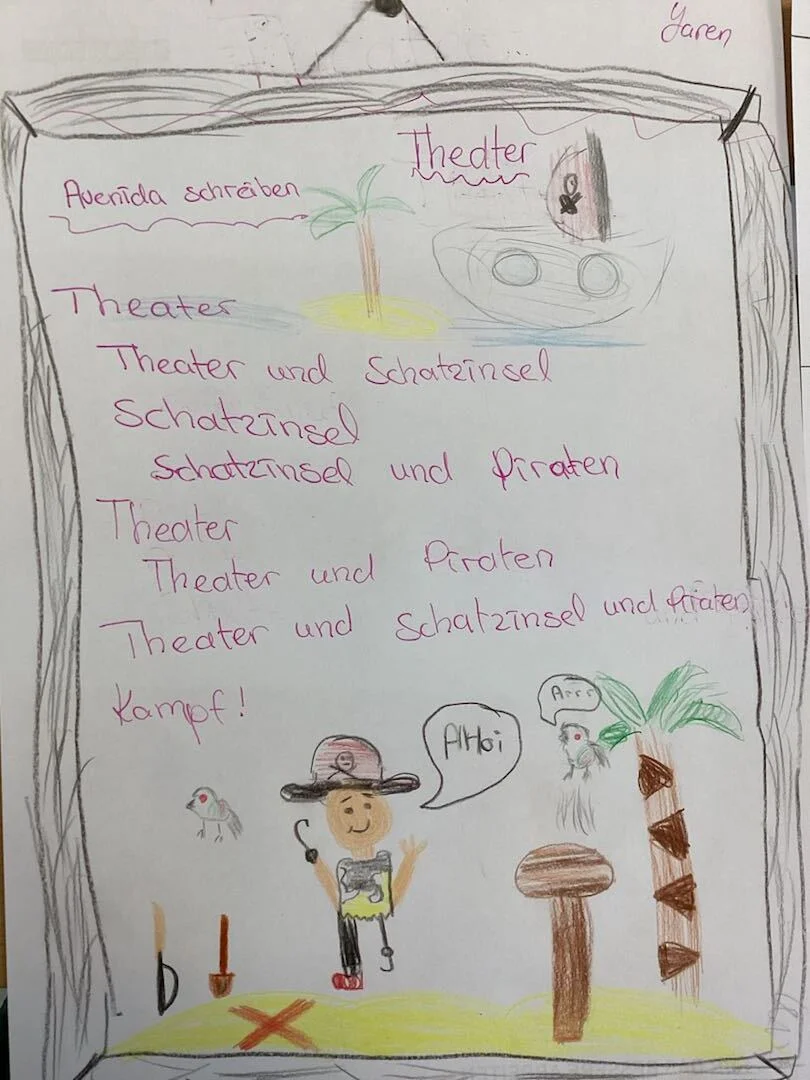 Yaren
Theater
Avenida schreiben
Theater
Theater und Schatzinsel
Schatzinsel
Schatzinsel und Piraten
Theater
Theater und Piraten
Theater und Schatzinsel und Piraten
Kampf!
Arrr
AHoi